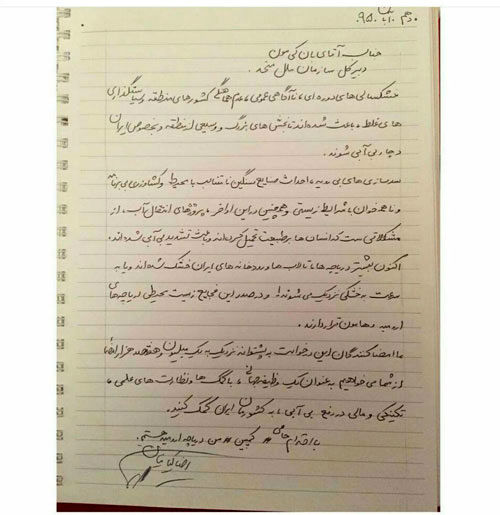 دهم آبان ۹۵
جناب آقای بان کی مون
دبیر کل سازمان ملل متحد.
خشکسالی های دوره ای، ناآگاهی عمومی، عدم هماهنگی کشورهای منطقه و سیاستگذاری
های غلط، باعث شده اند تا بخش های بزرگ و وسیعی از منطقه و بخصوص ایران
دچار بی آبی شوند.
سدسازی های بی رویه، احداث صنایع سنگین نامتناسب با محیط و کشاورزی بی برنامه
و ناهمخوان با شرایط زیستی و همچنین در این اواخر، پروژه های انتقال آب، از
مشکلاتی ست که انسان ها بر طبیعت تحمیل کرده اند و باعث تشدید بی آبی شده اند.
اکنون بیشتر دریاچه ها، تالاب ها و رودخانه های ایران خشک شده اند و یا به
سرعت به خشکی نزدیک می شوند! و در صدر این فجایع زیست محیطی دریاچه های
ارومیه و هامون قرار دارند.
ما امضا کنندگان این درخواست به پشتوانه نزدیک به یک میلیون و هفتصد هزار امضا
از شما می خواهیم به عنوان یک وظیفه با کمک ها و نظارت های علمی،
تکنیکی و مالی در رفع بی آبی، به کشورمان ایران کمک کنید.
با احترام # کمپین # من دریاچه ارومیه هستم.
رضا کیانیان